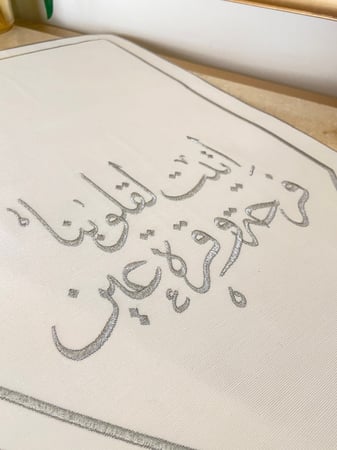 أتيت لقلوبنا
فرحة وقرة عين